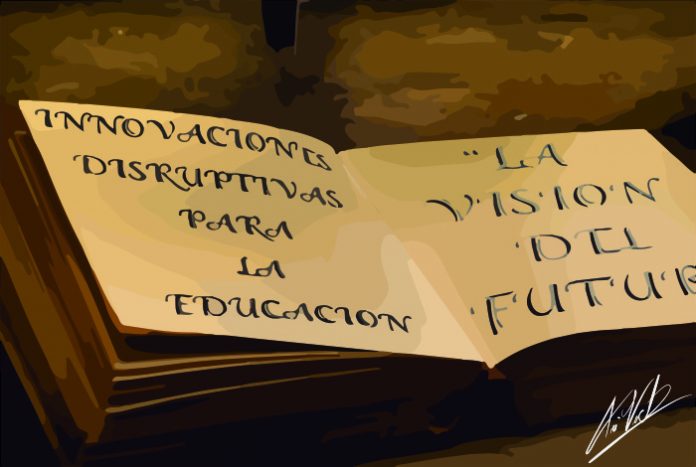 INNOVACIONES
DISRUPTIVAS
PARA
LA
EDUCACION
¨ LA
VISION
DEL
FUTUR